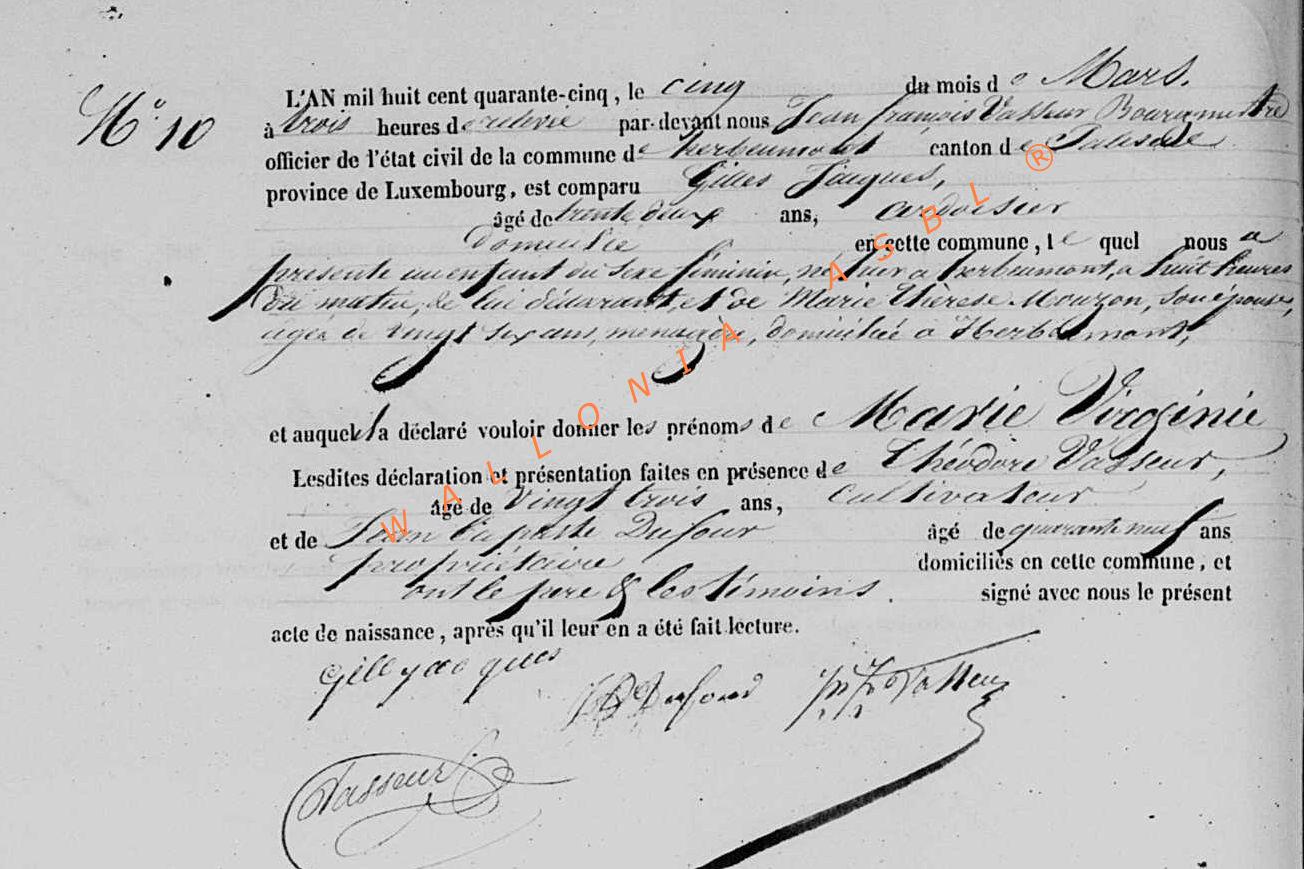 N.o 10
L'AN mil huit cent quarante-cinq, le cinq du mois de Mars.
à trois heures de relevée par-devant nous Jean françois Vasseur Bourgmestre
officier de l'état civil de la commune de herbeumont canton de Paliseul
province de Luxembourg, est comparu Gilles Jaques,
âgé de trente deux ans, ardoisier
domicilié en cette commune, le quel nous a
presenté un enfant du sexe féminin, né hier a herbeumont, a huit heures
du matin, de lui déclarant, et de Marie Thérese Mouzon, son épouse,
agée de vingt six ans, menagère, domiciliée a Herbeumont,
et auquel il a déclaré vouloir donner les prénoms de Marie Virginie
Lesdites déclaration et présentation faites en présence de Théodore Vasseur,
âgé de vingt trois ans, Cultivateur
et de Jean Baptiste Dufour âgé de quarante neuf ans
propriétaire domiciliés en cette commune, et
ont le pere & les témoins. signé avec nous le présent
acte de naissance, après qu'il leur en a été fait lecture.
Dufour Vasseur
Vasseur
WALLONIA ASBL ®